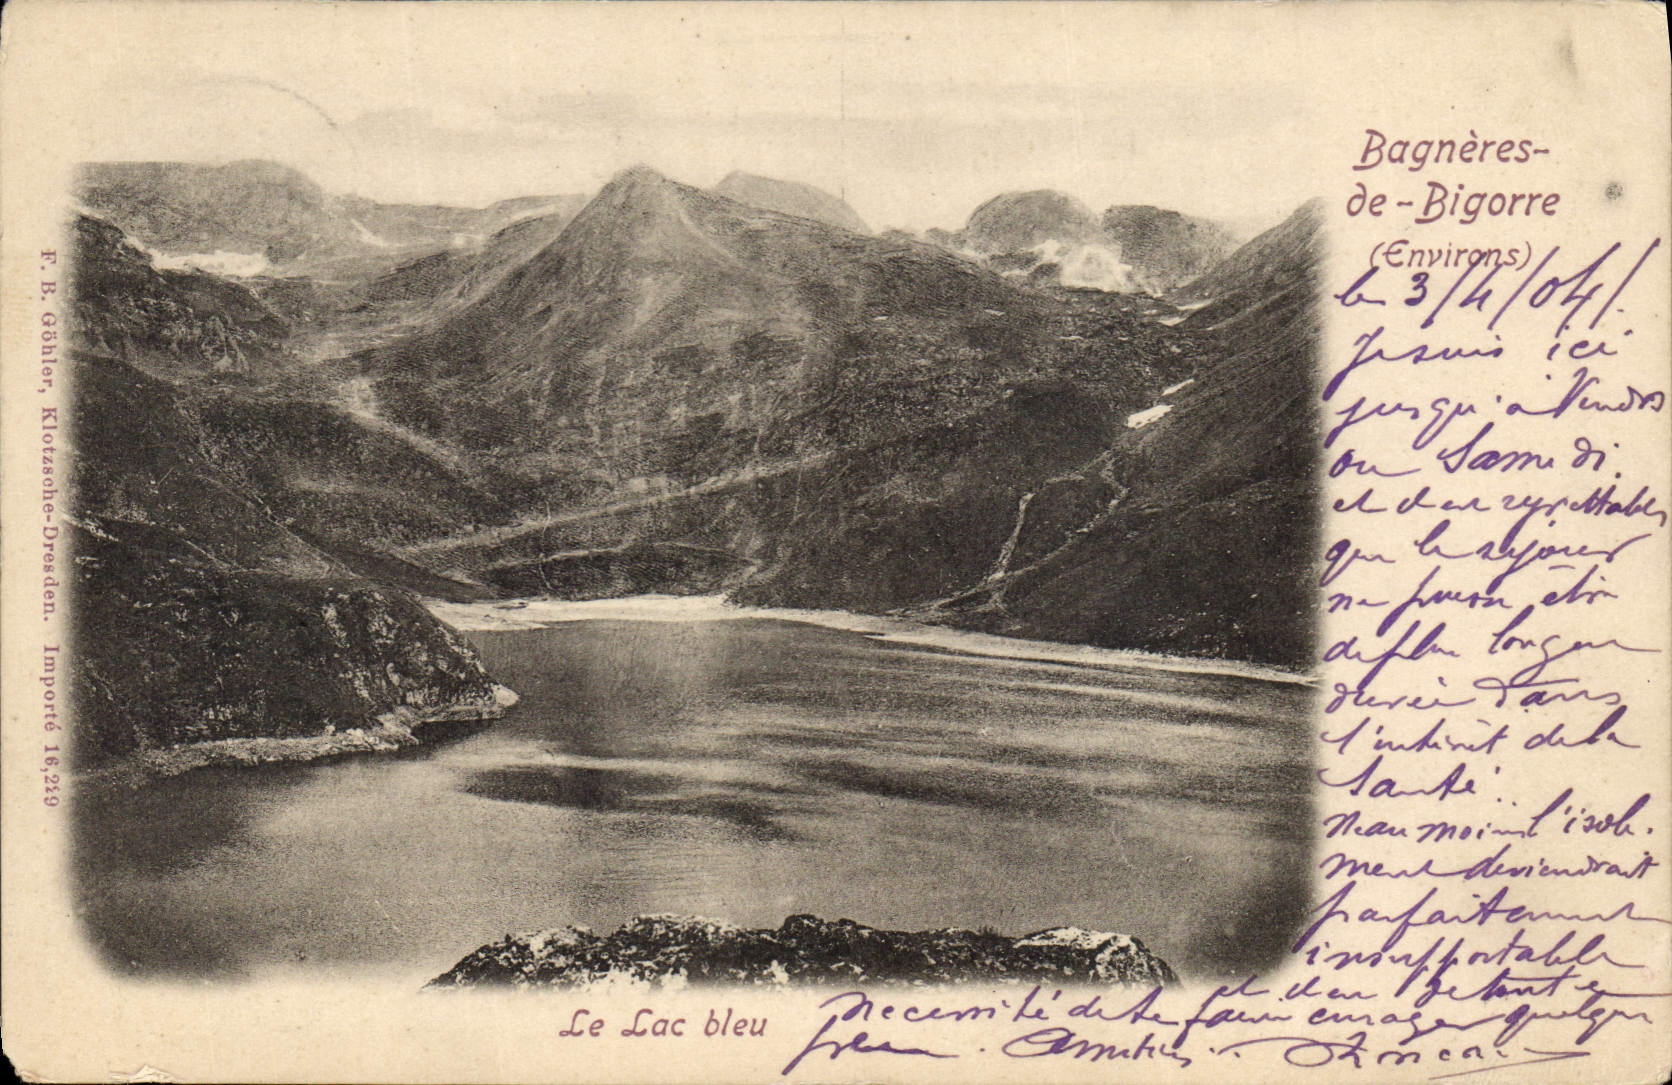 Bagnères-
de-Bigorre
(Environs)
le 3/4/04/.
Je suis ici
jusqu'à Vendr
ou Samedi.
et il est regrettable
que le séjour
ne puisse être
de plus longue
durée dans
l'intérêt de la
Santé.
Néanmoins l'isole-
ment deviendrait
parfaitement
insupportable
et il en
nécessité de te faire enrager quelque
peu. Amitiés.
Le Lac bleu
F. B. Göhler, Klotzsche-Dresden. Importé 16,249